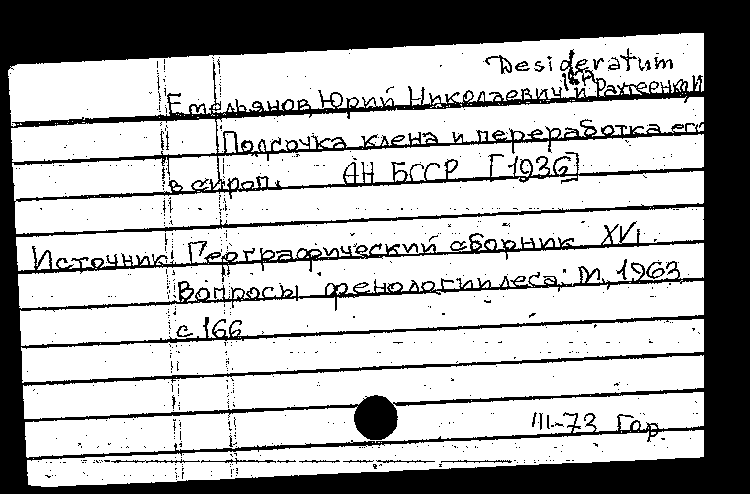 Desideratum
Емельянов, Юрий Николаевич и Рахтеенко, И
Подсочка клена и переработка его
в сироп. АН БССР [1936]
Источник: Географический сборник XVI
Вопросы фенологии леса; М, 1963
с. 166
III-73 Гор